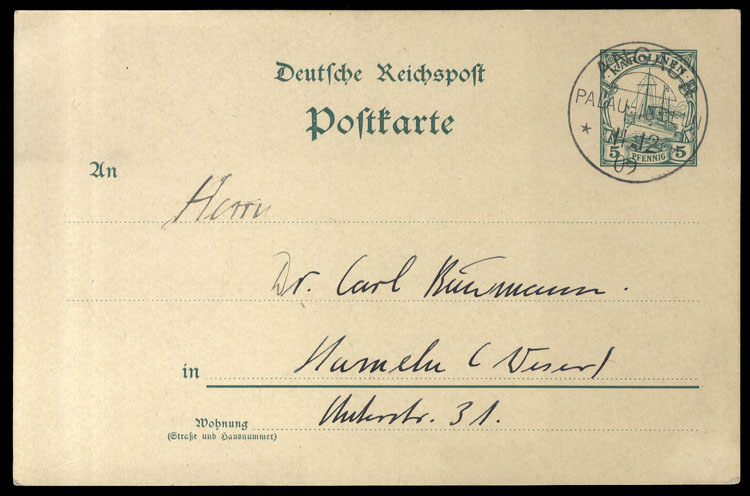 Deutsche Reichspost
Postkarte
KAROLINEN
5 PFENNIG 5
ANGAUR
PALAU-INSELN
* 11 12 09
An
Herrn
Dr. Carl
in Hameln (Weser)
31.
Wohnung
(Straße und Hausnummer)